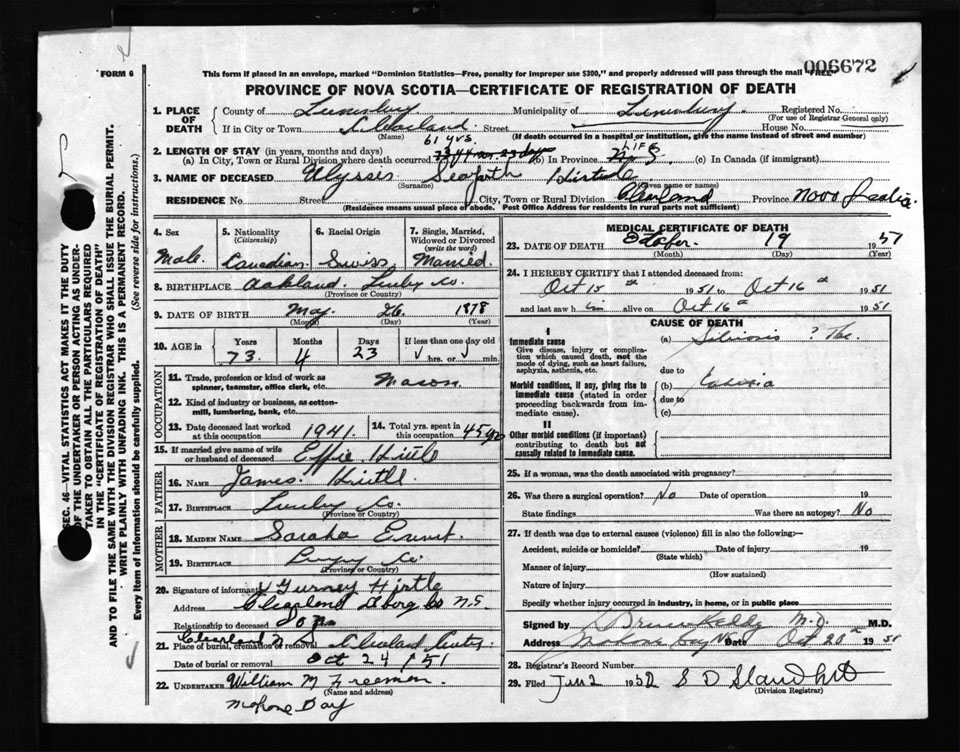 FORM 6
006672
This form if placed in an envelope, marked "Dominion Statistics—Free, penalty for improper use $300," and properly addressed will pass through the mail "FREE"
PROVINCE OF NOVA SCOTIA—CERTIFICATE OF REGISTRATION OF DEATH
1. PLACE OF DEATH County of Lunenburg Municipality of Lunenburg Registered No.
(For use of Registrar General only)
If in City or Town Street House No.
(Name) (If death occurred in a hospital or institution, give the name instead of street and number)
61 yrs. LIFE
2. LENGTH OF STAY (in years, months and days)
(a) In City, Town or Rural Division where death occurred (b) In Province (c) In Canada (if immigrant)
3. NAME OF DECEASED Ulysses Seaforth Hirtle
(Surname) (Given name or names)
RESIDENCE No. Street City, Town or Rural Division Cleveland Province Nova Scotia
(Residence means usual place of abode. Post Office Address for residents in rural parts not sufficient)
4. Sex 5. Nationality (Citizenship) 6. Racial Origin 7. Single, Married, Widowed or Divorced (write the word)
Male. Canadian Swiss Married.
8. BIRTHPLACE Oakland Lunby Co.
(Province or Country)
9. DATE OF BIRTH May 26 1878
(Month) (Day) (Year)
10. AGE in Years Months Days If less than one day old
73 4 23 hrs. or min.
OCCUPATION
11. Trade, profession or kind of work as spinner, teamster, office clerk, etc. Mason
12. Kind of industry or business, as cotton-mill, lumbering, bank, etc.
13. Date deceased last worked at this occupation 1941. 14. Total yrs. spent in this occupation 45 yrs
15. If married give name of wife or husband of deceased Effie Hirtle
FATHER
16. NAME James Hirtle
17. BIRTHPLACE Lunby Co
(Province or Country)
MOTHER
18. MAIDEN NAME Saraha Ernst.
19. BIRTHPLACE Co.
(Province or Country)
20. Signature of informant Gurney Hirtle
Address Cleveland Co N.S
Relationship to deceased Son
Cleveland N S
21. Place of burial, cremation or removal Cleveland
Date of burial or removal Oct 24 / 51
22. UNDERTAKER William M Freeman.
(Name and address)
Mahone Bay
MEDICAL CERTIFICATE OF DEATH
23. DATE OF DEATH October 19 1951
(Month) (Day) (Year)
24. I HEREBY CERTIFY that I attended deceased from:
Oct 15th 1951 to Oct 16th 1951
and last saw him alive on Oct 16th 1951
CAUSE OF DEATH
I
Immediate cause
Give disease, injury or complication which caused death, not the mode of dying, such as heart failure, asphyxia, asthenia, etc.
(a) Silicosis ? Tbc.
due to
Morbid conditions, if any, giving rise to immediate cause (stated in order proceeding backwards from immediate cause).
(b)
due to
(c)
II
Other morbid conditions (if important) contributing to death but not causally related to immediate cause.
25. If a woman, was the death associated with pregnancy?
26. Was there a surgical operation? No Date of operation 19
State findings Was there an autopsy? No
27. If death was due to external causes (violence) fill in also the following:—
Accident, suicide or homicide? Date of injury 19
(State which)
Manner of injury
(How sustained)
Nature of injury
Specify whether injury occurred in industry, in home, or in public place
Signed by Bruce Kelly M.D. M.D.
Address Mahone Bay NS Date Oct 20th 1951
28. Registrar's Record Number
29. Filed Jan 2 1952 S D
(Division Registrar)
SEC. 46—VITAL STATISTICS ACT MAKES IT THE DUTY
OF THE UNDERTAKER OR PERSON ACTING AS UNDER-
TAKER TO OBTAIN ALL THE PARTICULARS REQUIRED
IN THE "CERTIFICATE OF REGISTRATION OF DEATH"
AND TO FILE THE SAME WITH THE DIVISION REGISTRAR WHO SHALL ISSUE THE BURIAL PERMIT.
WRITE PLAINLY WITH UNFADING INK. THIS IS A PERMANENT RECORD.
Every item of Information should be carefully supplied. (See reverse side for instructions.)